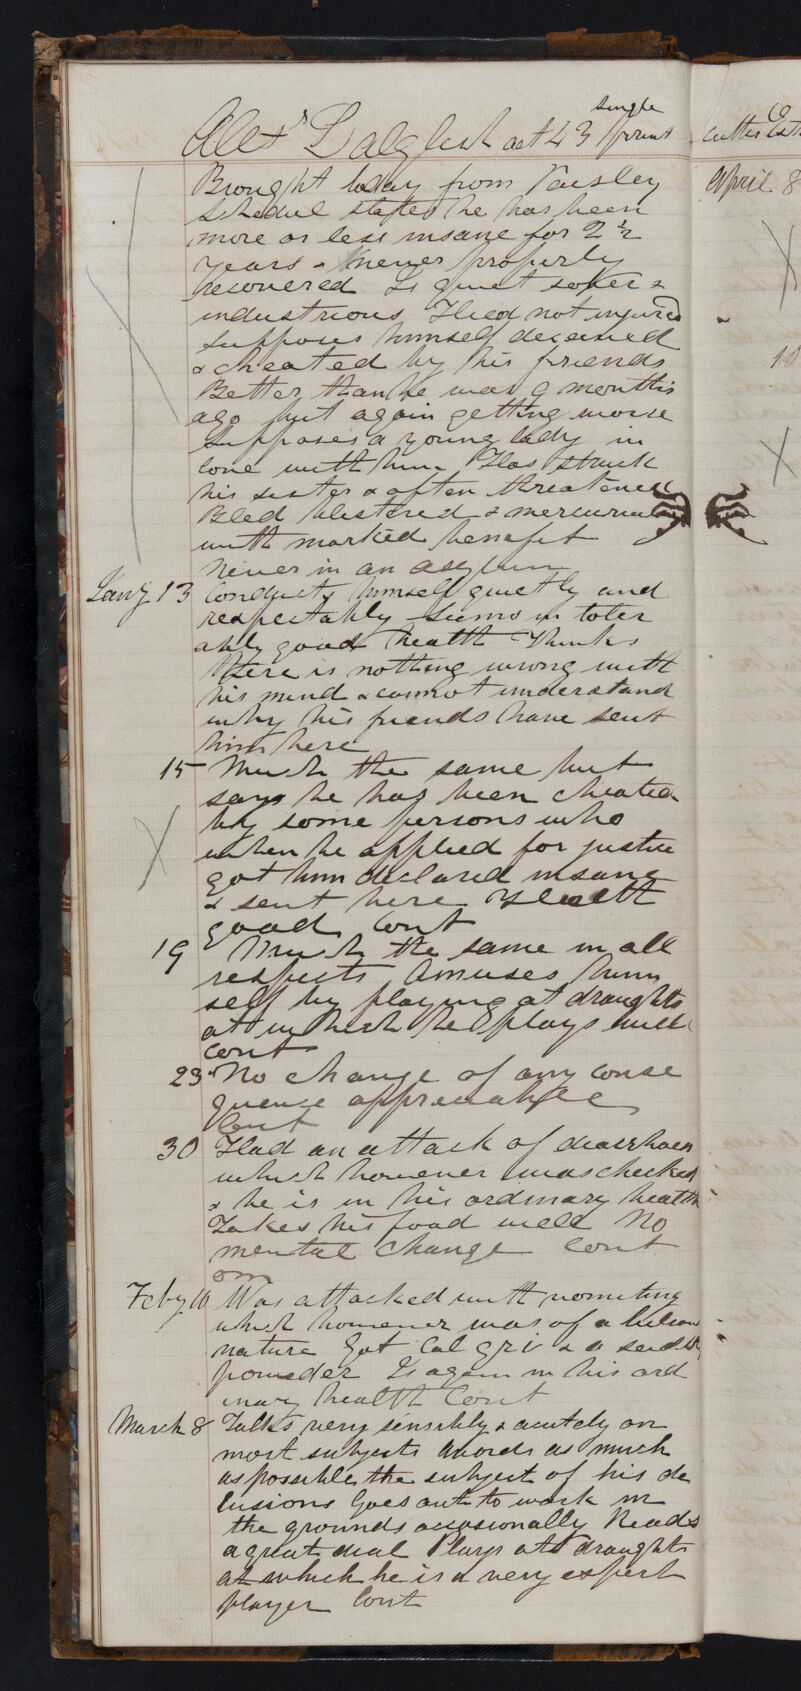 single
Alexr Dalglish aet 43 print cutter
Brought today from Paisley
Schedul states he has been
more or less insane for 2½
years & never properly
recovered Is quiet sober &
industrious Head not injured
Supposes himself deceived
& cheated by his friends
Better than he was 9 months
ago but again getting worse
Supposes a young lady in
love with him Has struck
his sister & often threatened
Bled blistered &
with marked benefit
Never in an asylum
Jany 13 Conducts himself quietly and
respectably Seems in toler
ably good health Thinks
there is nothing wrong with
his mind & cannot understand
why his friends have sent
him here
15 Much the same but
says he has been cheated
by some persons who
when he applied for justice
got him declared insane
& sent here Health
good Cont
19 Much the same in all
respects Amuses him
self by playing at draughts
at which he plays well
Cont
23 No change of any conse
quence appreciable
Cont
30 Had an attack of diarrhoea
which however was checked
& he is in his ordinary health
Takes his food well No
mental change Cont
om
Feby 10 Was attacked with vomiting
which however was of a bilious
nature Got Cal gr i & a seidlitz
powder Is again in his ord
inary health Cont
March 8 Talks very sensibly & acutely on
most subjects Avoids as much
as possible the subject of his de
lusions Goes out to work in
the grounds occasionally Reads
a great deal Plays at draughts
at which he is a very expert
player Cont
April 8
10